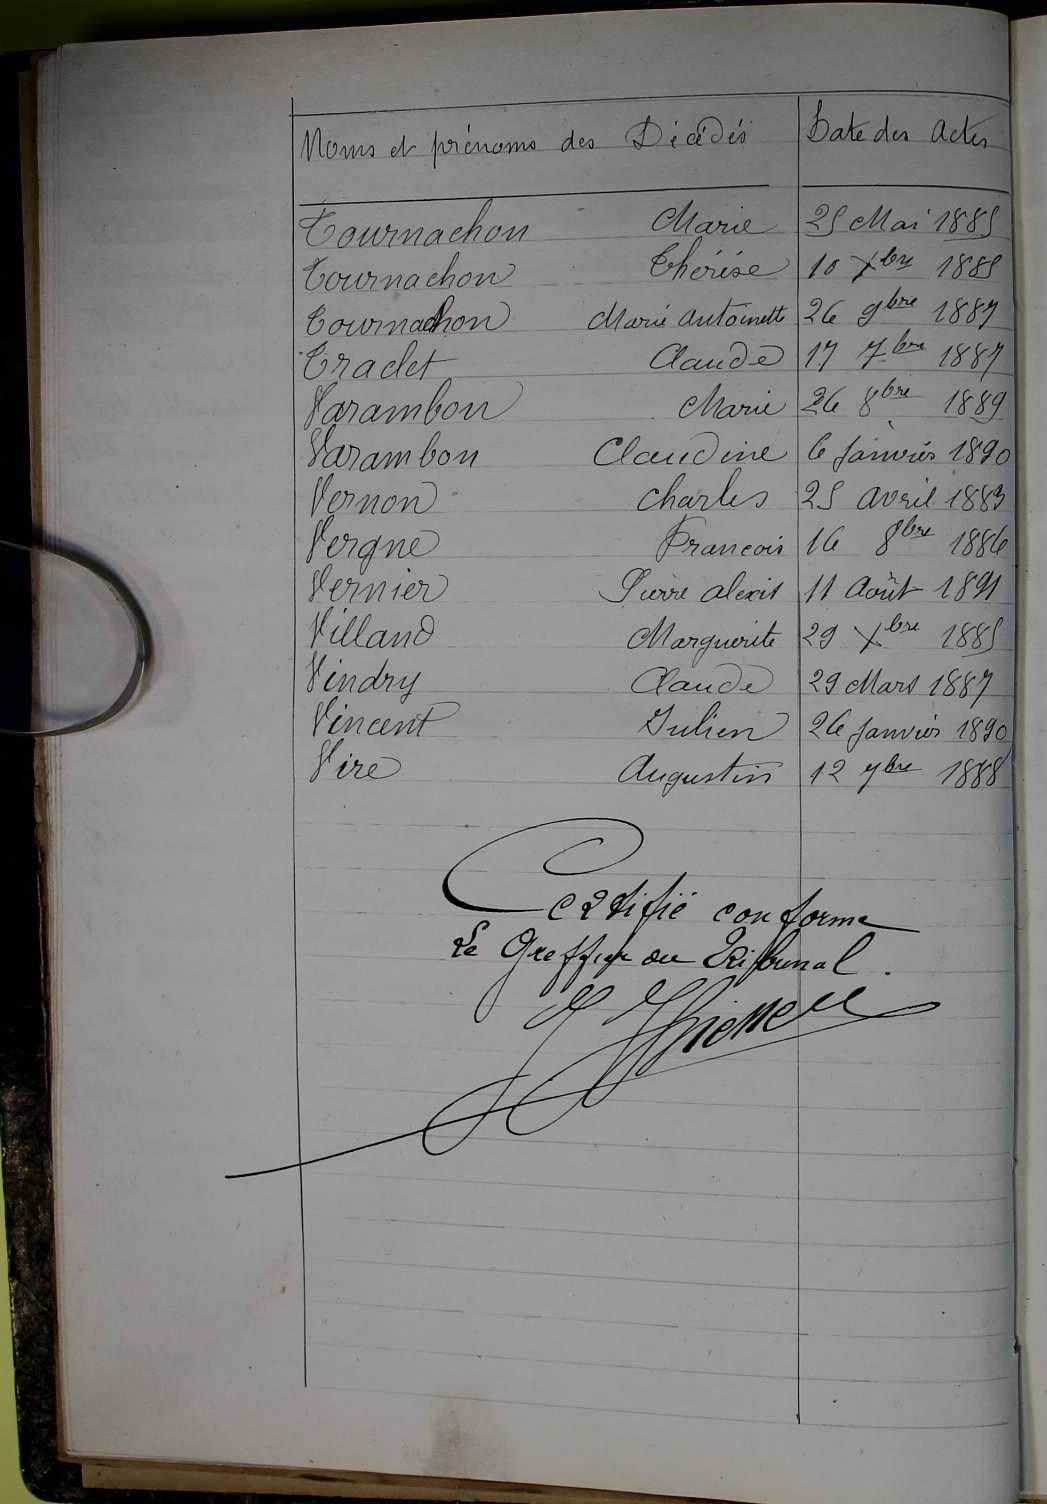 Noms et prénoms des Décédés Date des Actes
Tournachon Marie 25 Mai 1885
Tournachon Thérèse 10 Xbre 1885
Tournachon Marie Antoinette 26 9bre 1887
Traclet Claude 17 7bre 1887
Varambon Marie 26 8bre 1889
Varambon Claudine 6 janvier 1890
Vernon Charles 25 avril 1883
Vergne Francois 16 8bre 1886
Vernier Pierre alexis 11 Août 1891
Villand Marguerite 29 Xbre 1885
Vindry Claude 29 Mars 1887
Vincent Julien 26 janvier 1890
Vire Augustin 12 7bre 1888
Certifié conforme
Le Greffier du Tribunal.